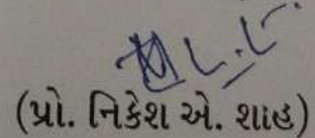 (પ્રો. નિકેશ એ. શાહ)